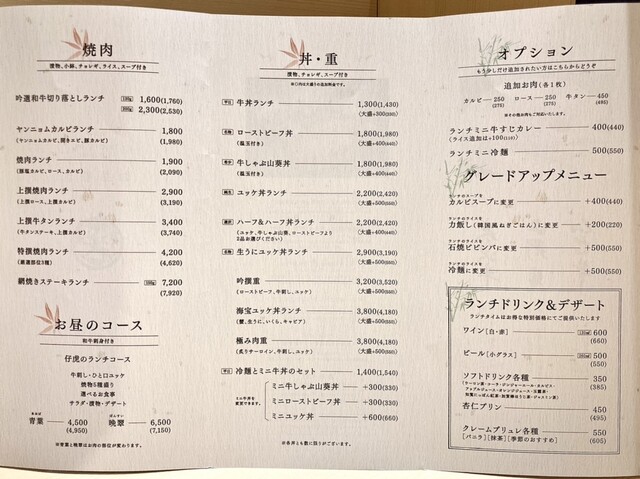 焼肉
漬物、小鉢、チョレギ、ライス、スープ付き
吟選和牛切り落としランチ 100g 1,600(1,760)
200g 2,300(2,530)
ヤンニョムカルビランチ 1,800
(1,980)
焼肉ランチ 1,900
(2,090)
上撰焼肉ランチ 2,900
(上撰ロース、上撰カルビ) (3,190)
上撰牛タンランチ 3,400
(牛タンステーキ、上撰カルビ) (3,740)
特撰焼肉ランチ 4,200
(厳選部位5種) (4,620)
網焼きステーキランチ 7,200
(7,920)
お昼のコース
和牛刺身付き
仔虎のランチコース
牛刺し・ひと口ユッケ
焼物5種盛り
選べるお食事
サラダ・漬物・デザート
青葉 4,500
(4,950)
晩翠 6,500
(7,150)
※青葉と晩翠はお肉の部位が変わります。
丼・重
漬物、チョレギ、スープ付き
牛丼ランチ 1,300(1,430)
ローストビーフ丼 1,800(1,980)
(温玉付き)
牛しゃぶ山葵丼 1,800(1,980)
(温玉付き)
ユッケ丼ランチ 2,200(2,420)
ハーフ&ハーフ丼ランチ 2,200(2,420)
(ユッケ、牛しゃぶ山葵、ローストビーフより
2品お選びください)
生うにユッケ丼ランチ 2,900(3,190)
吟撰重 3,200(3,520)
(ローストビーフ、牛刺し、ユッケ)
海宝ユッケ丼ランチ 3,800(4,180)
(蟹、生うに、いくら、キャビア)
極み肉重 3,800(4,180)
(炙りサーロイン、牛刺し、ユッケ)
冷麺とミニ牛丼のセット 1,400(1,540)
ミニ牛しゃぶ山葵丼 +300(330)
ミニローストビーフ丼 +300(330)
ミニユッケ丼 +600(660)
※各丼とも数に限りがございます。
オプション
もう少しだけ追加されたい方はこちらからどうぞ
追加お肉(各1枚)
カルビ 250 ロース 250 牛タン 450
(275) (275) (495)
ランチミニ牛すじカレー 400(440)
(ライス追加は+100(110))
ランチミニ冷麺 500(550)
グレードアップメニュー
ランチのスープを
カルビスープに変更 +400(440)
ランチのライスを
力飯し(韓国風ねぎごはん)に変更 +200(220)
ランチのライスを
石焼ビビンバに変更 +500(550)
ランチのライスを
冷麺に変更 +500(550)
ランチドリンク&デザート
ランチタイムはお得な特別価格にてご提供いたします
ワイン[白・赤] 600
(660)
ビール[小グラス] 500
(550)
ソフトドリンク各種 350
(385)
杏仁プリン 450
(495)
クレームブリュレ各種 550
[バニラ][抹茶][季節のおすすめ] (605)